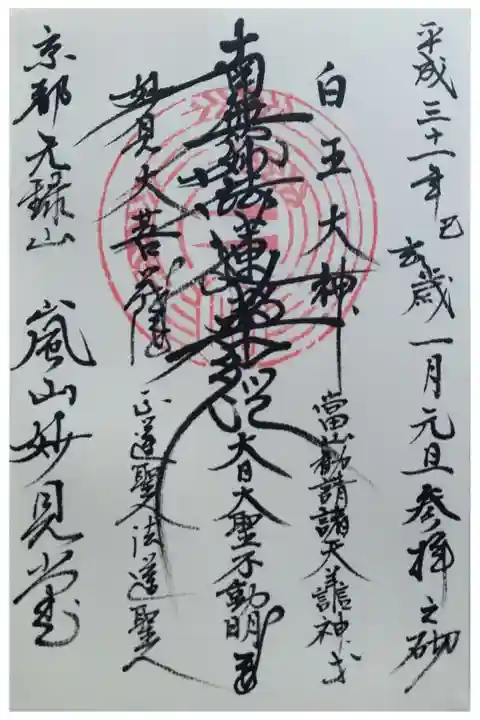 平成三十一年己亥歳一月元旦参拝之砌
白玉大神
當山勧請諸天善神
南無妙法蓮華経
大日大聖不動明王
大菩薩
正道聖人法道聖人
京都元録山 嵐山妙見堂